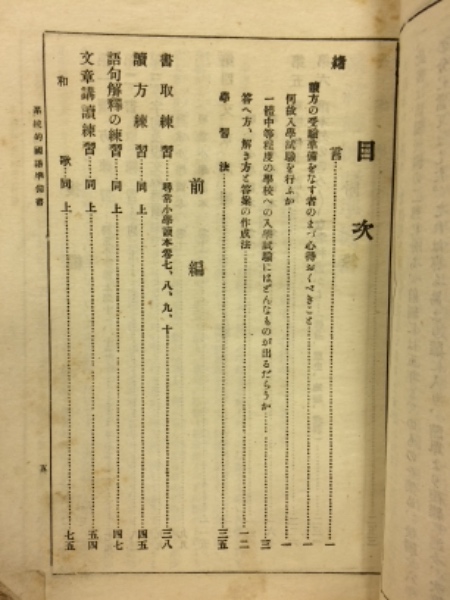 目次
緒言……一
讀方の受驗準備をなす者のまづ心得おくべきこと……一
何故入學試驗を行ふか……一
一體中等程度の學校への入學試驗にはどんなものが出るだらうか……三
答へ方、解き方と答案の作成法……一二
學習法……三五
前編
書取練習……尋常小學讀本卷七、八、九、十……三八
讀方練習……同上……四五
語句解釋の練習……同上……四七
文章講讀練習……同上……五四
和歌……同上……七五
系統的國語準備書
五